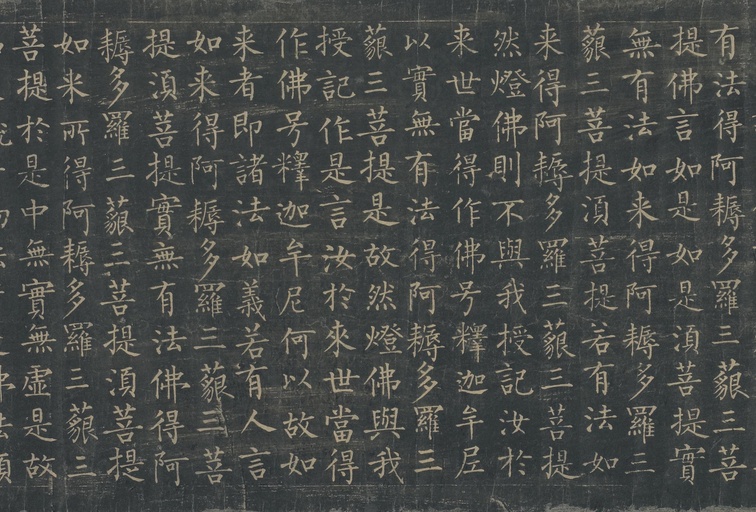 有法得阿耨多羅三藐三菩
提佛言如是如是湏菩提實
無有法如来得阿耨多羅三
藐三菩提湏菩提若有法如
来得阿耨多羅三藐三菩提
然燈佛則不與我授記汝於
来世當得作佛号釋迦牟尼
以實無有法得阿耨多羅三
藐三菩提是故然燈佛與我
授記作是言汝於來世當得
作佛号釋迦牟尼何以故如
来者即諸法如義若有人言
如来得阿耨多羅三藐三菩
提湏菩提實無有法佛得阿
耨多羅三藐三菩提湏菩提
如来所得阿耨多羅三藐三
菩提於是中無實無虛是故